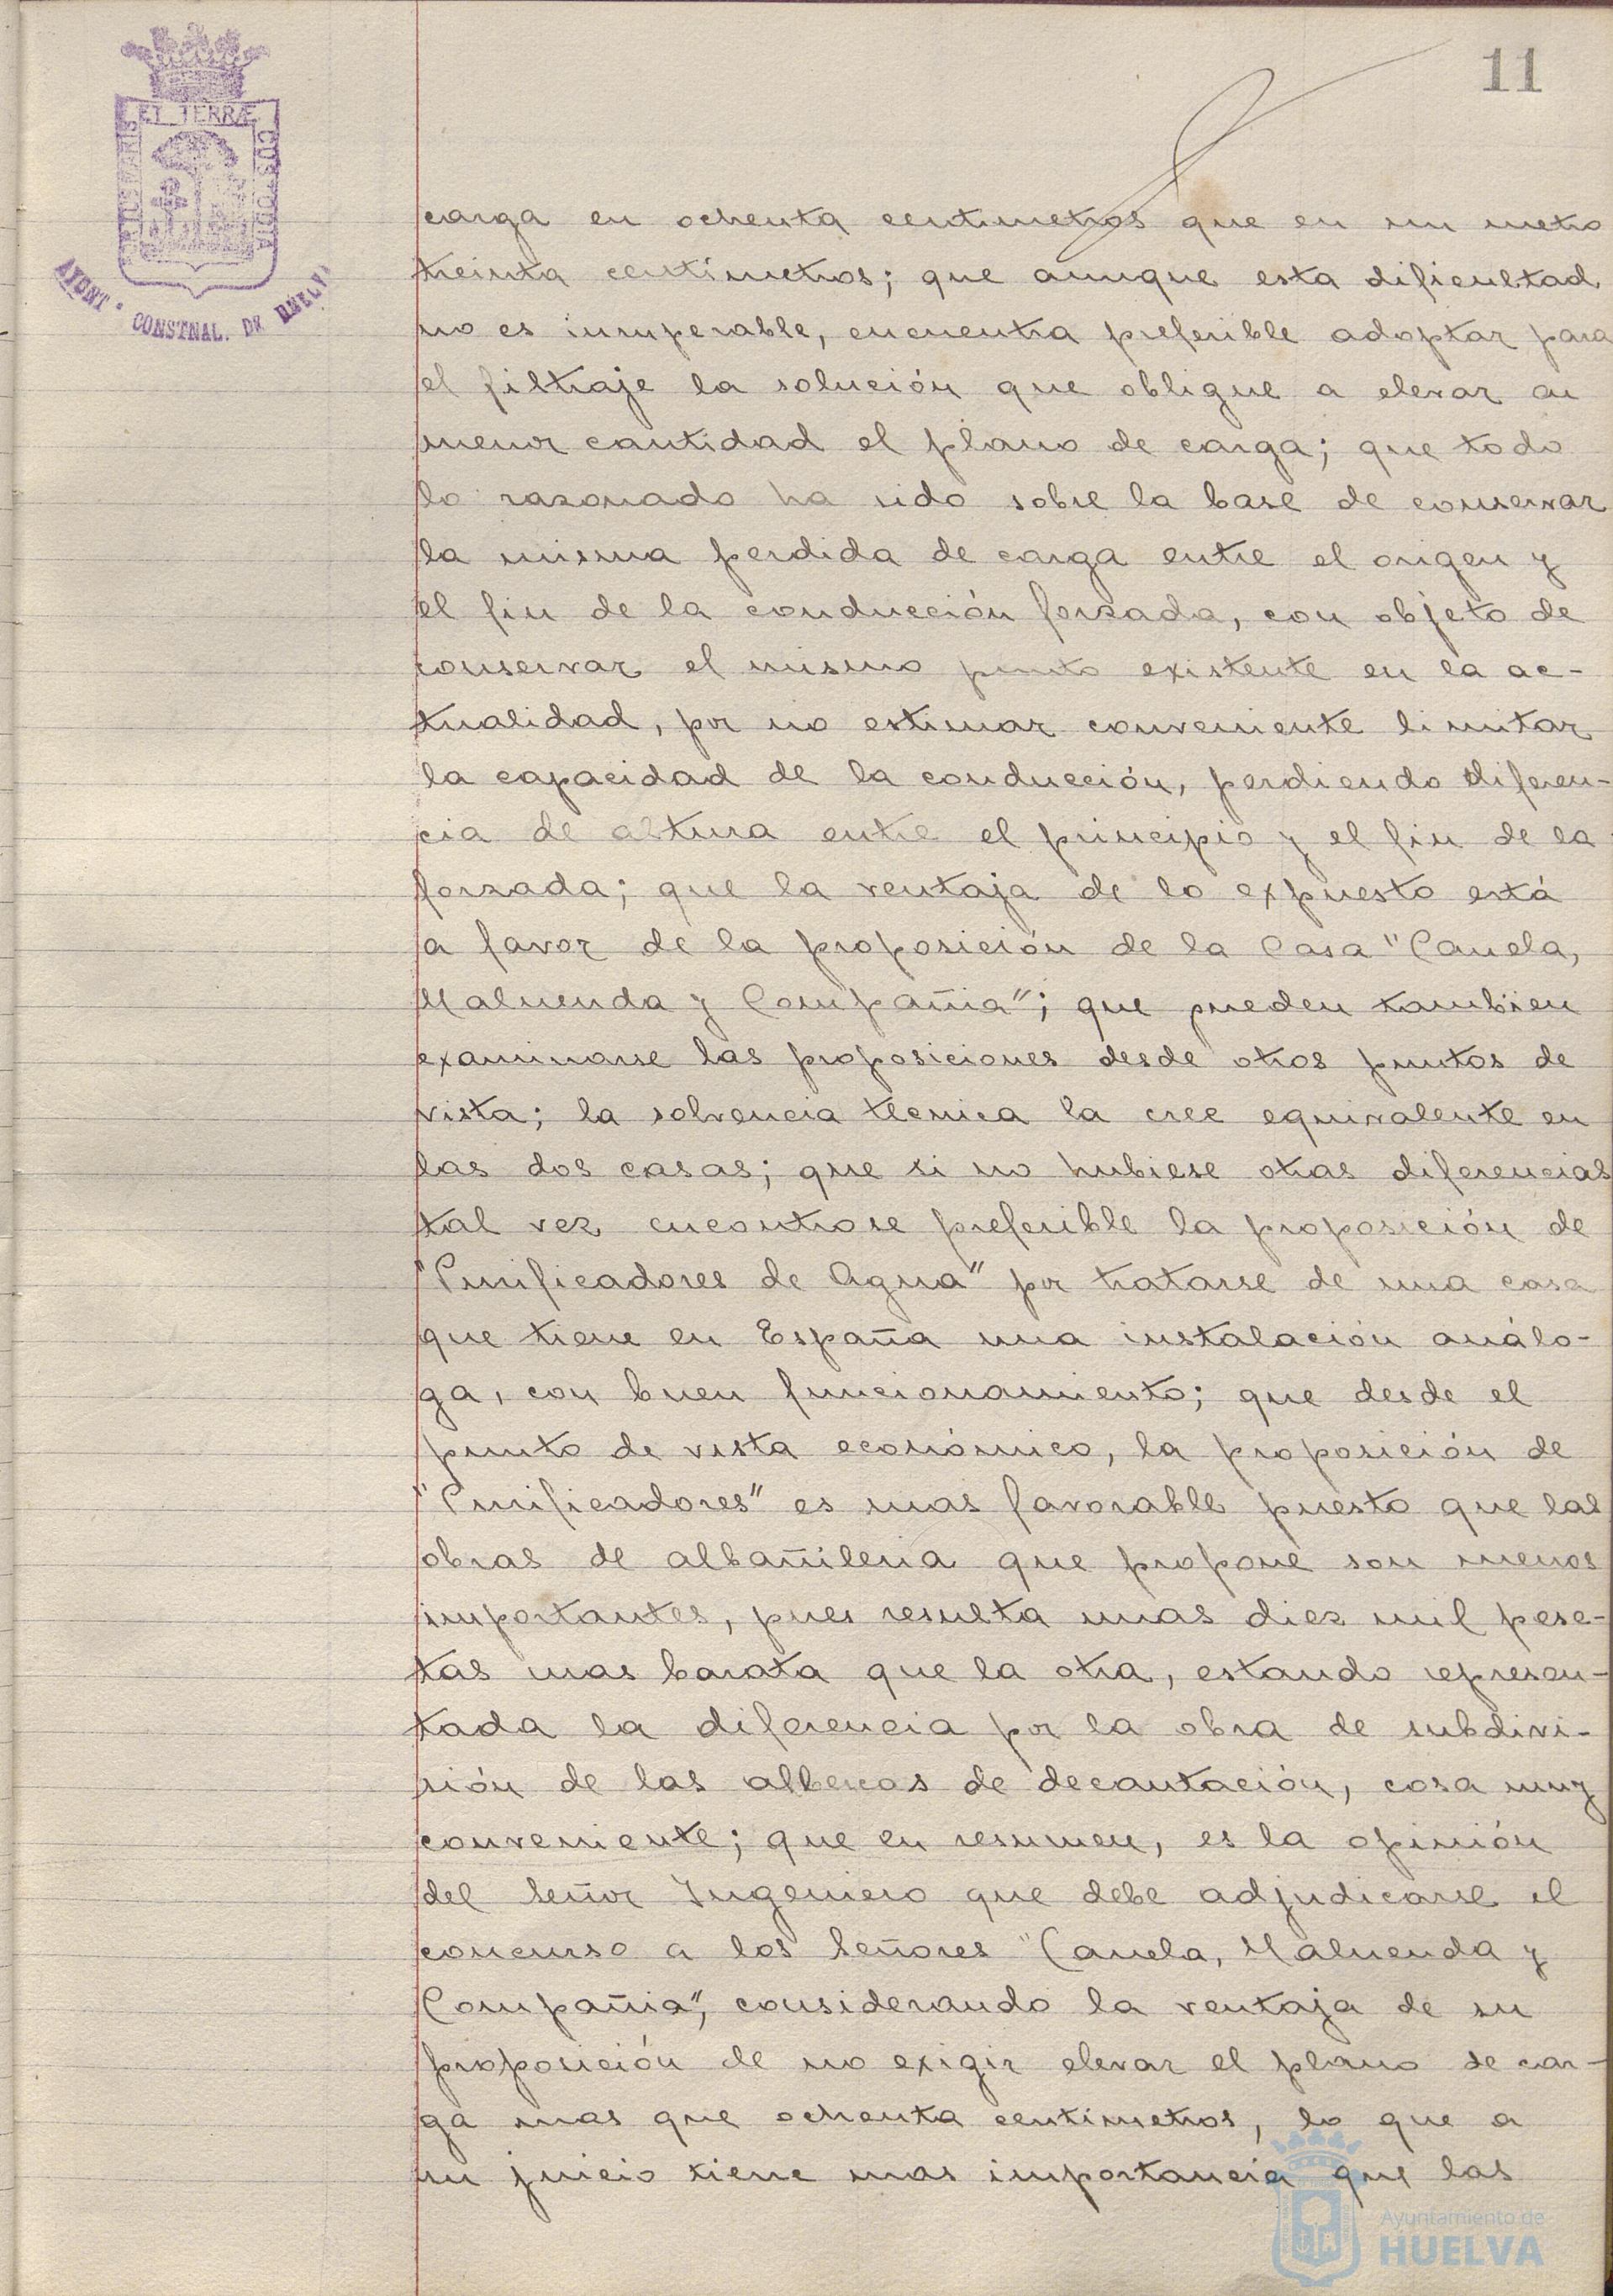 11
ET TERRÆ
PORTUS MARIS
CUSTODIA
AYUNT. CONSTNAL. DE HUELVA
carga en ochenta centimetros que en un metro
treinta centimetros; que aunque esta dificultad
no es insuperable, encuentra preferible adoptar para
el filtraje la solución que obligue a elevar en
menor cantidad el plano de carga; que todo
lo razonado ha sido sobre la base de conservar
la misma perdida de carga entre el origen y
el fin de la conducción forzada, con objeto de
conservar el mismo punto existente en la ac-
tualidad, por no estimar conveniente limitar
la capacidad de la conducción, perdiendo diferen-
cia de altura entre el principio y el fin de la
forzada; que la ventaja de lo expuesto está
a favor de la proposición de la Casa "Canela,
Maluenda y Compañia"; que pueden tambien
examinarse las proposiciones desde otros puntos de
vista; la solvencia técnica la cree equivalente en
las dos casas; que si no hubiese otras diferencias
tal vez encontrase preferible la proposición de
"Purificadores de Agua" por tratarse de una casa
que tiene en España una instalación análo-
ga, con buen funcionamiento; que desde el
punto de vista económico, la proposición de
"Purificadores" es mas favorable puesto que las
obras de albañileria que propone son menos
importantes, pues resulta unas diez mil pese-
tas mas barata que la otra, estando represen-
tada la diferencia por la obra de subdivi-
sión de las albercas de decantación, cosa muy
conveniente; que en resumen, es la opinión
del Señor Ingeniero que debe adjudicarse el
concurso a los Señores "Canela, Maluenda y
Compañia", considerando la ventaja de su
proposición de no exigir elevar el plano de car-
ga mas que ochenta centimetros, lo que a
su juicio tiene mas importancia que las
Ayuntamiento de
HUELVA